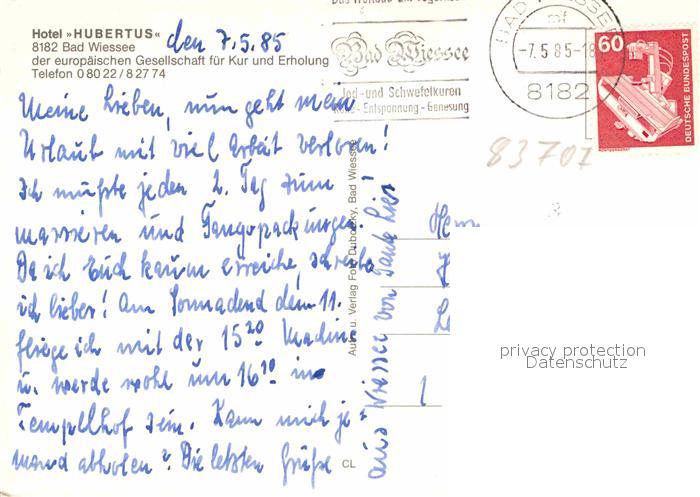 Hotel »HUBERTUS«
8182 Bad Wiessee
der europäischen Gesellschaft für Kur und Erholung
Telefon 0 80 22 / 8 27 74
den 7.5.85
Meine Lieben, nun geht mein
Urlaub mit viel Arbeit verloren!
Ich mußte jeden 2. Tag zum
massieren und Fangopackungen.
Da ich Euch kaum erreiche, schreibe
ich lieber! Am Sonnabend dem 11.
fliege ich mit der 15 20 Maschine
u. werde wohl um 16 10 in
Templlhof sein. Kann mich je-
mand abholen? Die letzten Grüße
aus Wiessee von Tante Lies!
Autn u. Verlag Foto Dubotzky, Bad Wiessee
CL
Bad Wiessee
Jod- und Schwefelkuren
Entspannung - Genesung
BAD WIESSEE
mf
-7.5 85-18
8182
60
DEUTSCHE BUNDESPOST
83707
privacy protection
Datenschutz